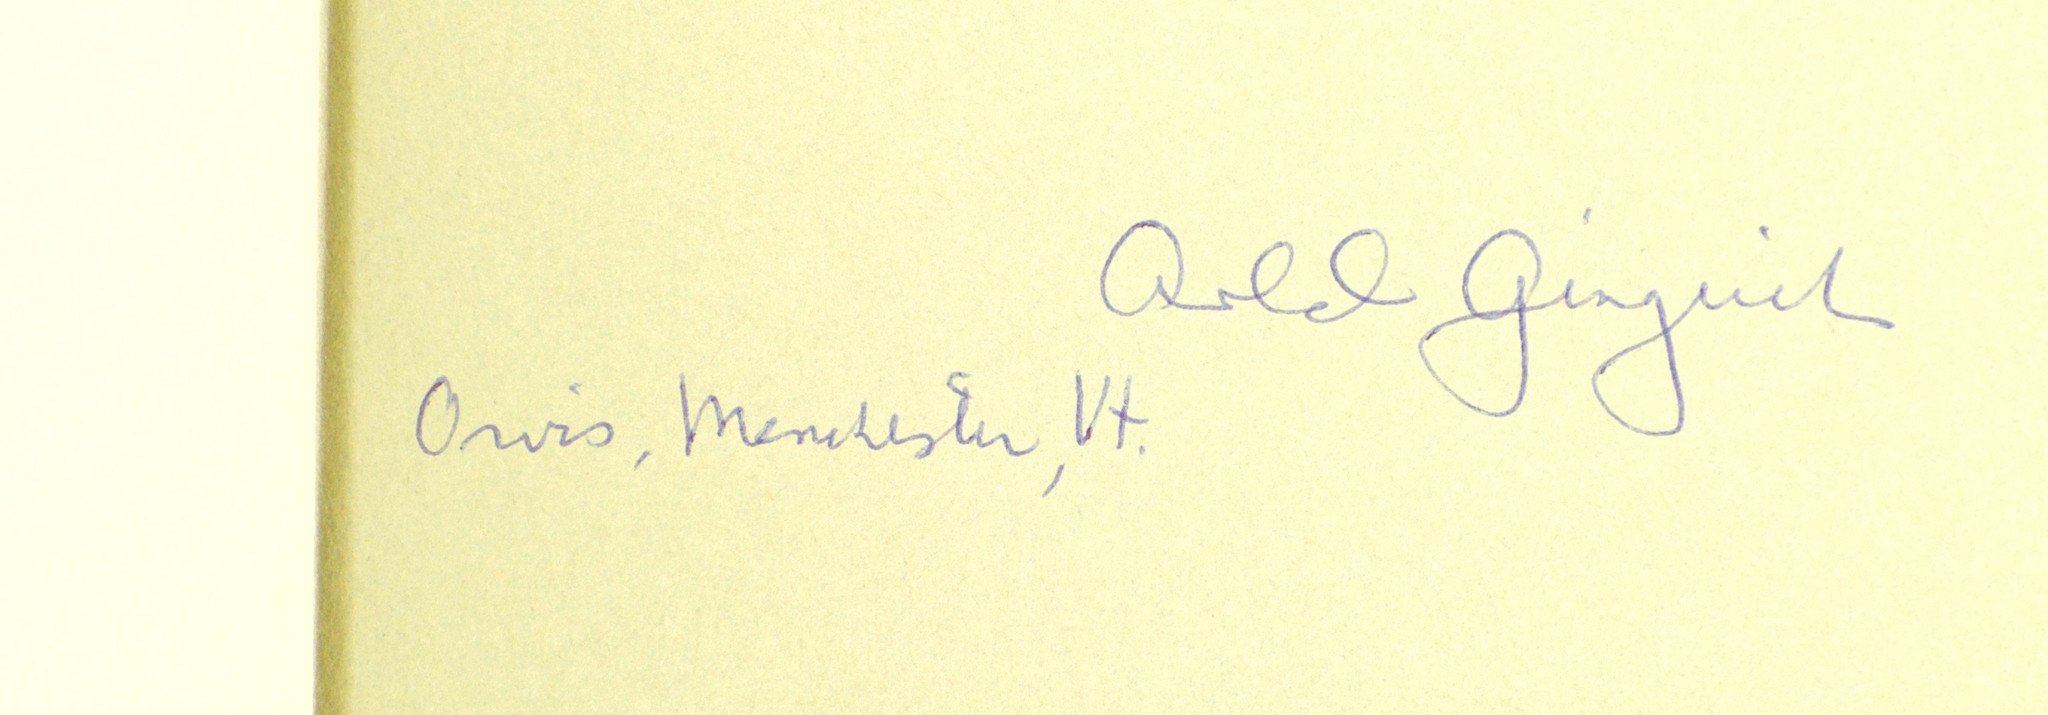 Arnold Gingrich
Orvis, Manchester, Vt.